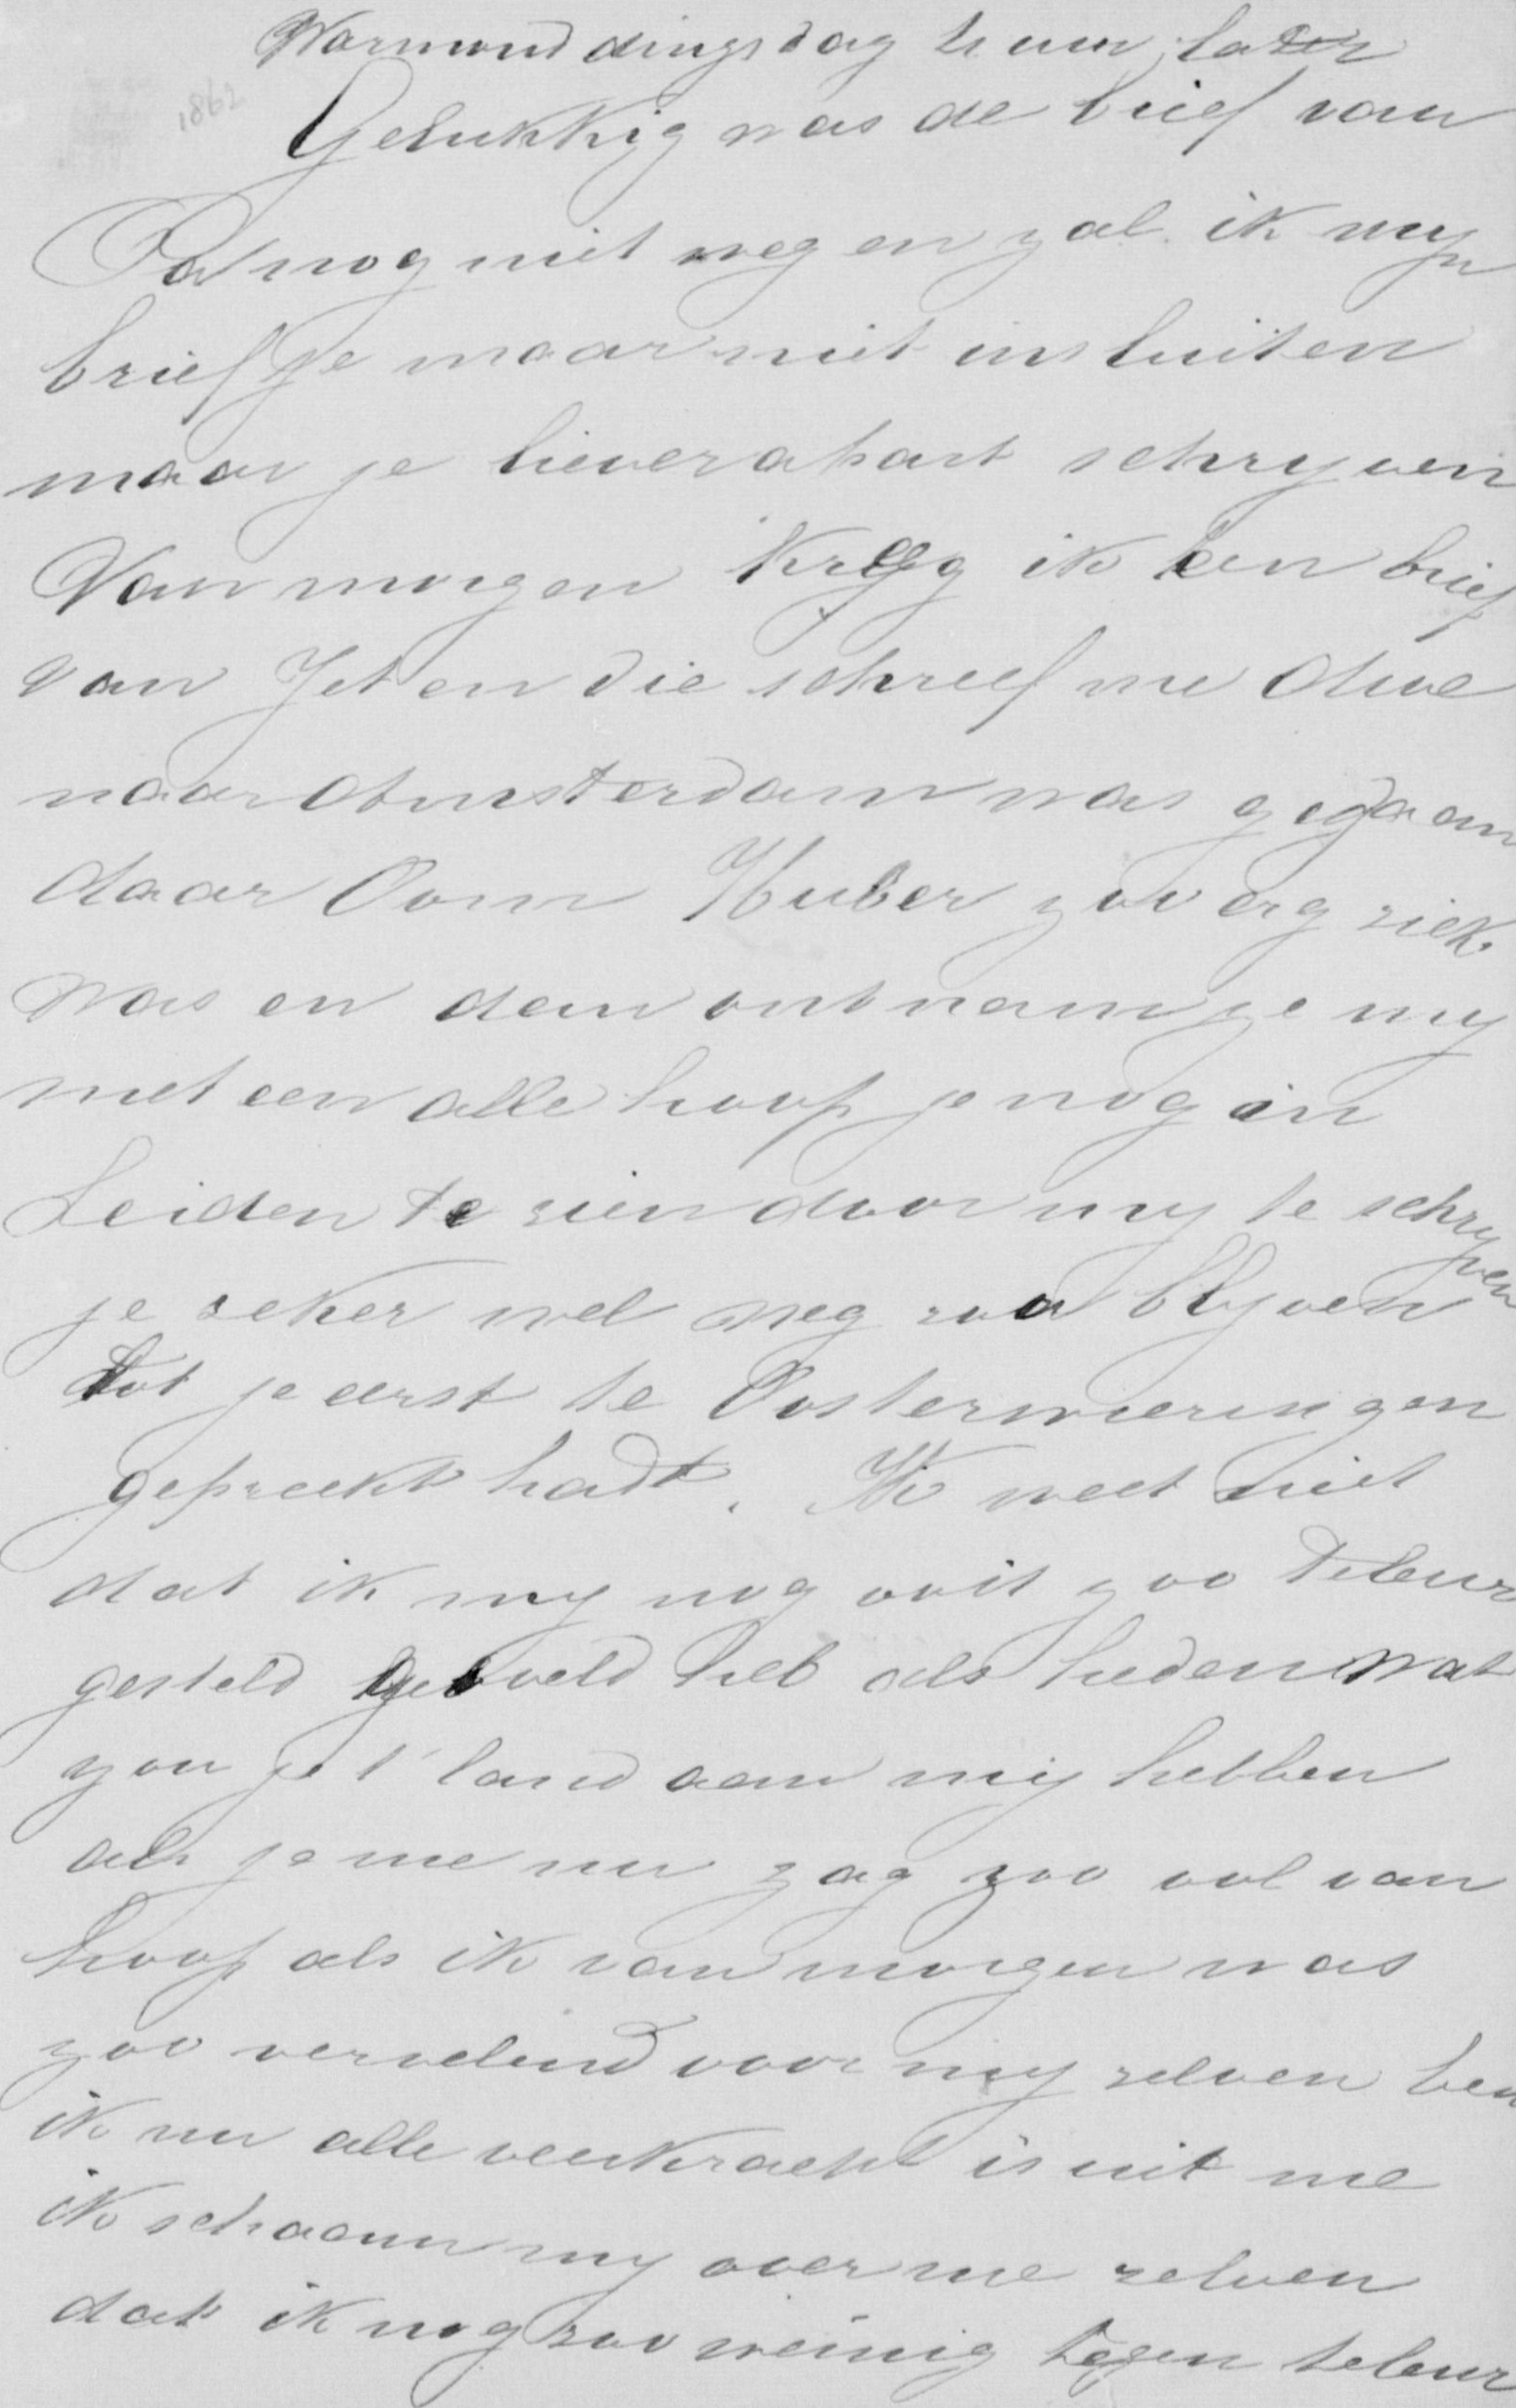 Warmond dingsdag 2 uur later
1862
Gelukkig was de brief van
Pa nog niet weg en zal ik myn
briefje maar niet insluiten
maar je liever apart schryven
Van morgen kryg ik een brief
van Jet en die schreef me
naar Amsterdam was gegaan
daar Oom Huber zoo erg ziek
was en dan ontnam ze my
met een alle hoop je nog in
Leiden te zien door my te schryven
je zeker wel weg zou blyven
tot je eerst te Oosterwieringen
gepreekt hadt. Ik weet niet
dat ik my nog ooit zoo teleur
gesteld gevoeld heb als heden wat
zou je t' land aan my hebben
als je me nu zag zoo vol van
hoop als ik van morgen was
zoo vervelend voor my zelven ben
ik nu alle veerkracht is uit me
ik schaam my over me zelven
dat ik nog zoo weinig tegen teleur